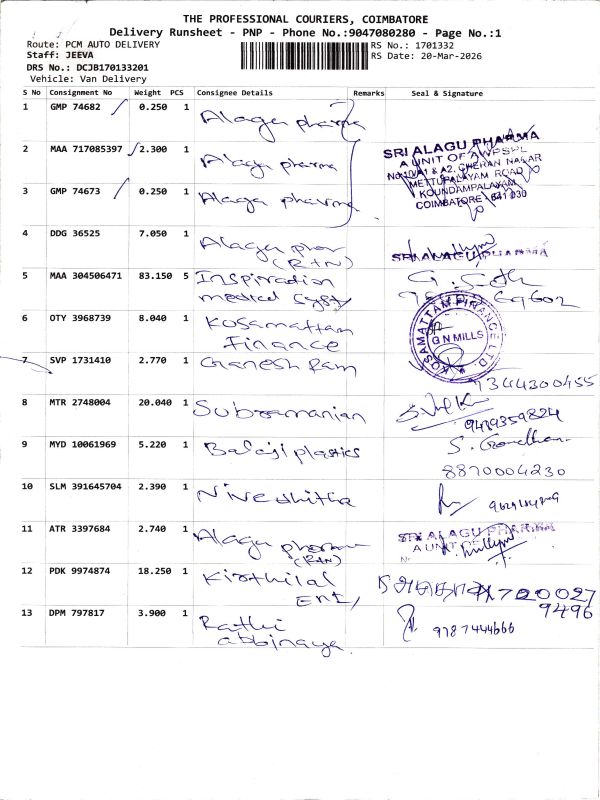 THE PROFESSIONAL COURIERS, COIMBATORE
Delivery Runsheet - PNP - Phone No.:9047080280 - Page No.:1
Route: PCM AUTO DELIVERY
RS No.: 1701332
Staff: JEEVA
RS Date: 20-Mar-2026
DRS No.: DCJB170133201
Vehicle: Van Delivery
S No Consignment No Weight PCS Consignee Details Remarks Seal & Signature
1 GMP 74682 0.250 1 Alagu pharma
2 MAA 717085397 2.300 1 Alagu pharma
SRI ALAGU PHARMA
A UNIT OF AWPSPL
No:10/A1 & A2, CHERAN NAGAR
METTUPALAYAM ROAD
KOUNDAMPALAYAM
COIMBATORE - 641 030
3 GMP 74673 0.250 1 Alagu pharma
4 DDG 36525 7.050 1 Alagu phar
(RTN)
SRI ALAGU PHARMA
5 MAA 304506471 83.150 5 Inspiration
medical Systy
6 OTY 3968739 8.040 1 Kosamattam
Finance
KOSAMATTAM FINANCE LTD
G N MILLS
7 SVP 1731410 2.770 1 Ganesh Ram
9344300455
8 MTR 2748004 20.040 1 Subramanian
9489359824
9 MYD 10061969 5.220 1 Balaji plastics
8870004230
10 SLM 391645704 2.390 1 Nivedhitha
11 ATR 3397684 2.740 1 Alagu pharma
(RTN)
SRI ALAGU PHARMA
A UNIT OF
12 PDK 9974874 18.250 1 Kirthilal
Ent,
720027
9496
13 DPM 797817 3.900 1 Rathi
abbinaya
9787444666